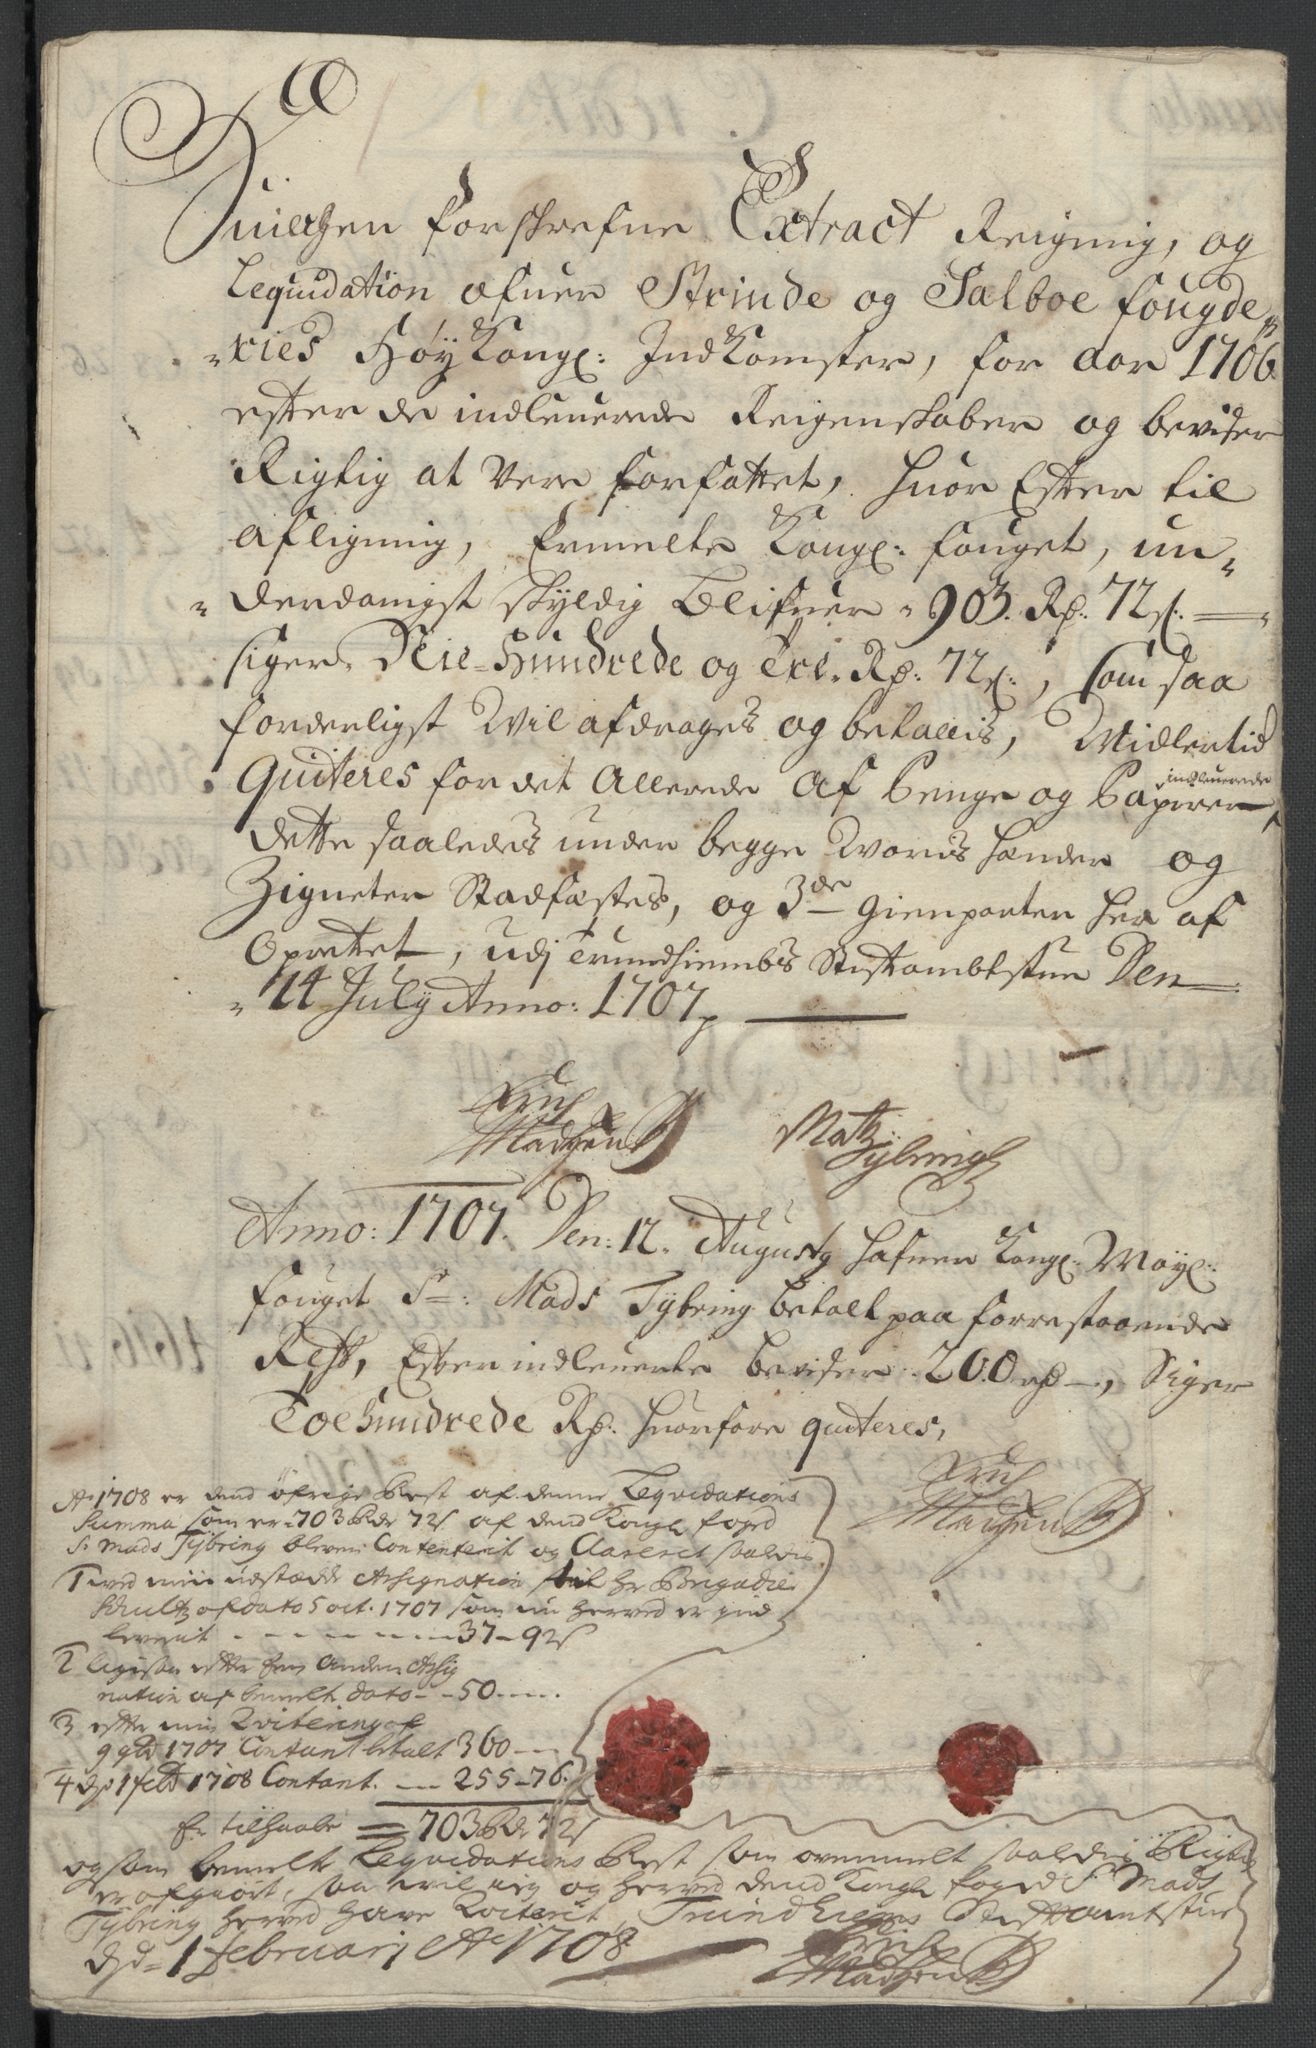 forskrefne Extract Reigning, og
Leqvidation ofuer Strinde og Sælboe fougde
"ries Høy Kongl: Indkomster, for aar 1706
efter de indleuerede Reigenskaber og beviser
Rigtig at Vere forfattet, huor Efter til
afligning, Ermelte Kongl: fouget, un"
"derdanigst skyldig blifuer " 903. Rd: 72 s:
siger Nie Hundrede og Tre Rd: 72 s:, som saa
forderligst Wil afdrages og betallis, Midlertid
Quiteres for det Allerede af Penge og Papirer indleuerede
dette saaledes under begge Woris hænder og
Zigneter Stadfæstes, og 3de Gienparter her af
Oprettet, udj Trundhiembs Stiftambtstue Den
"14 July Anno: 1707
Erich
Madtzen
Matz
Tÿbringh
Anno: 1707. Den: 12. Augusty hafuer Kongl: Mayl:
fouget Sr: Mads Tÿbring betalt paa forrestaaende
Rest, Efter indleuerte beviser 200 rd, Siger
Toe Hundrede Rd: huorfore quiteres,
Erich
Madtzen
Ao 1708 er dend øfrige Rest af denne Leqvidations
Summa som er 703 Rdr 72 s af dend Kongl foged
Sr Mads Tÿbring bleven Contenterit og Clareret saaledis
1 ved min udstædde Assignation til Hr Brigadie
Schultz af dato 5 oct. 1707 som nu herved er ind
leverit 37 - 92 s
2 ligesaa efter hen Anden Assig
nation af bemelte dato 50
3 efter min Qvitering af
9 1707 Contant betalt 360
4 dend 1 feb 1708 Contant. 255-76.
Er tilhaabe 703 Rdr 72 s
og som bemelte Leqvidations Rest som ovenmelt saaledis Rigtig
er afgiort, saa vil ieg og herved dend Kongl foged Sr Mads
Tÿbring herved have Qviterit, Trundhiems Stiftamtstue
dend 1 februarj Ao 1708
Erich
Madtzen